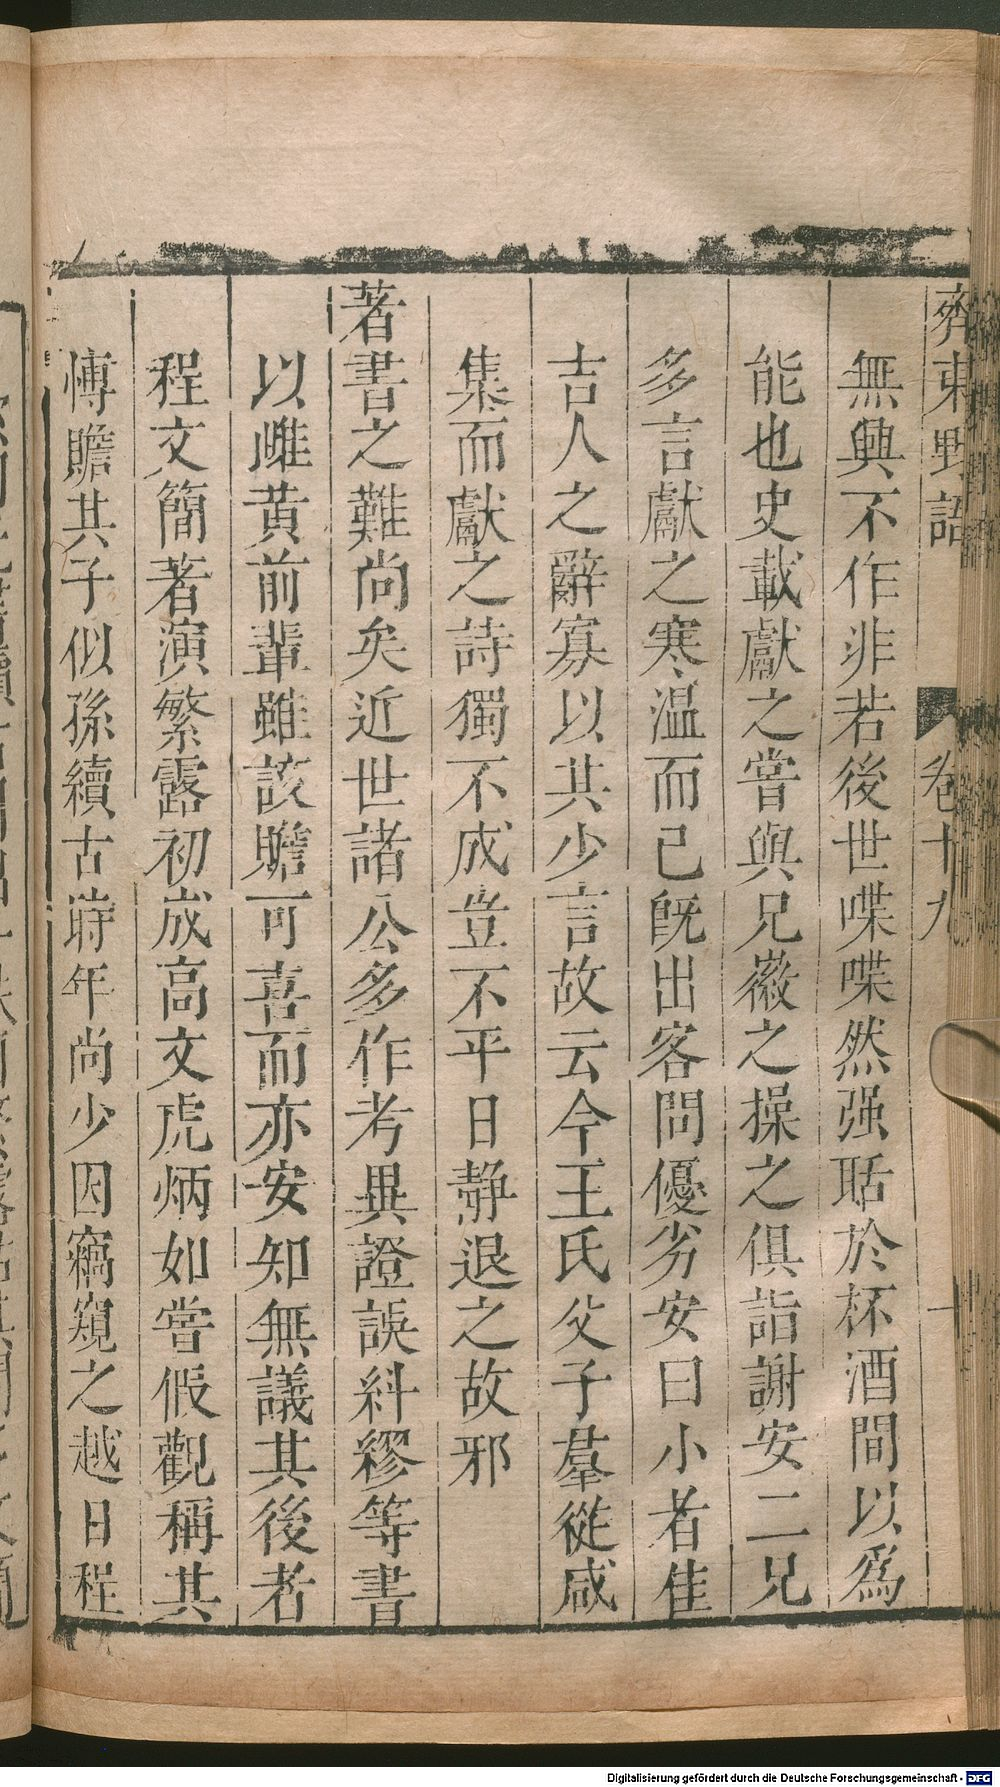 齊東野語 卷十九 十
無興不作非若後世喋喋然强聒於杯酒間以為
能也史載獻之嘗與兄徽之操之俱詣謝安二兄
多言獻之寒温而已既出客問優劣安曰小者佳
吉人之辭寡以其少言故云今王氏父子羣從咸
集而獻之詩獨不成豈不平日靜退之故邪
著書之難尚矣近世諸公多作考異證誤糾繆等書
以雌黄前輩雖該贍可喜而亦安知無議其後者
程文簡著演繁露初成高文虎炳如嘗假觀稱其
博贍其子似孫續古時年尚少因竊窺之越日程
Digitalisierung gefördert durch die Deutsche Forschungsgemeinschaft - DFG